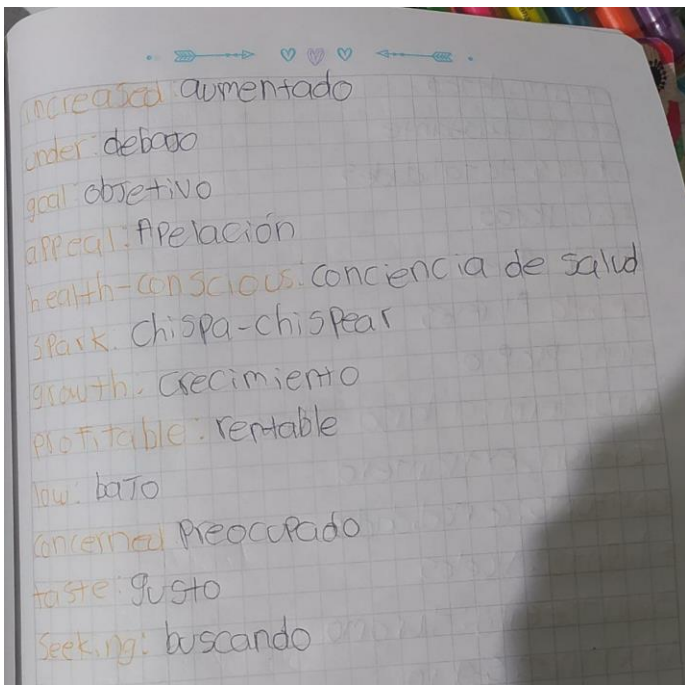 increased: aumentado
under: debajo
goal: objetivo
appeal: Apelación
health-conscious: conciencia de salud
spark: chispa-chispear
growth: crecimiento
profitable: rentable
low: bajo
concerned preocupado
taste: gusto
seeking: buscando